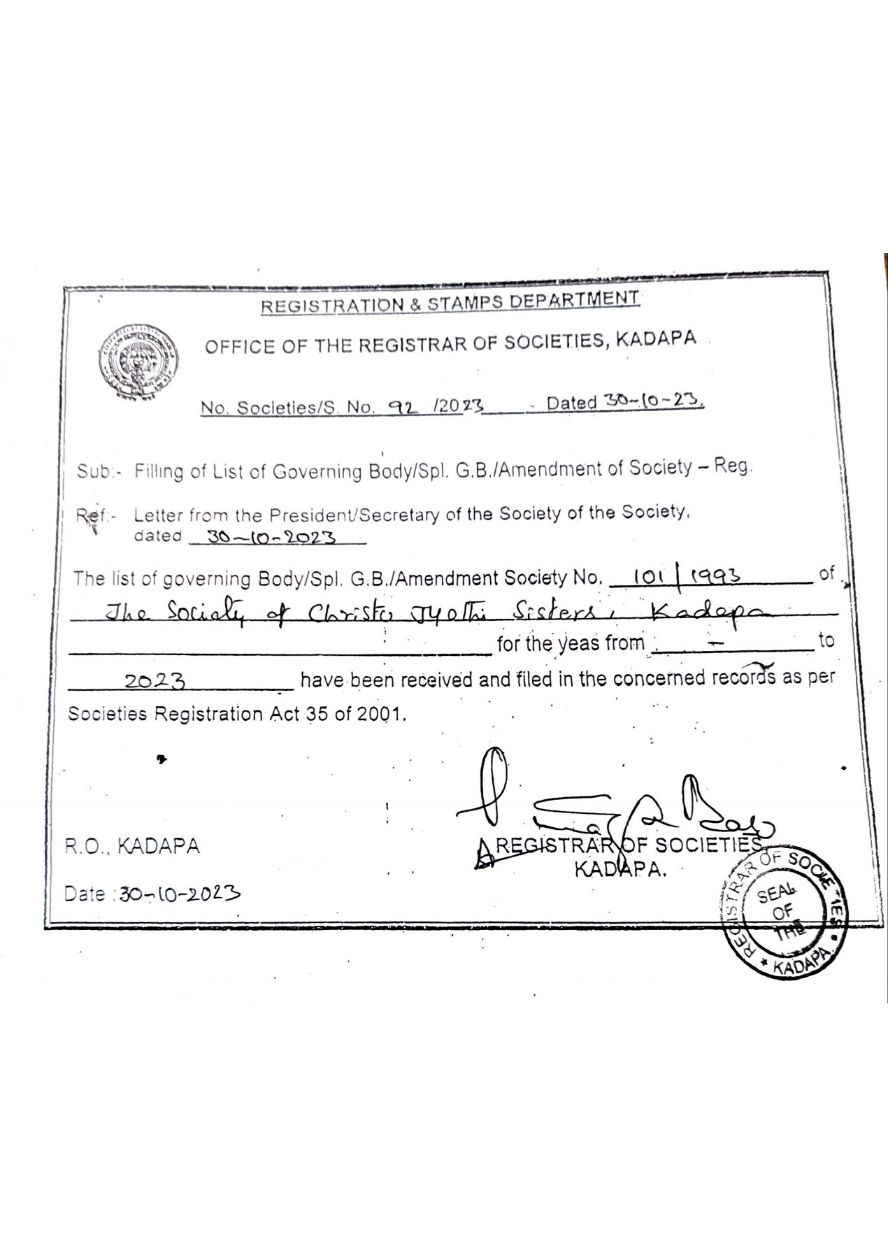 REGISTRATION & STAMPS DEPARTMENT
OFFICE OF THE REGISTRAR OF SOCIETIES, KADAPA
No. Societies/S. No. 92 /2023 - Dated 30-10-23.
Sub:- Filling of List of Governing Body/Spl. G.B./Amendment of Society – Reg.
Ref:- Letter from the President/Secretary of the Society of the Society,
dated 30-10-2023
The list of governing Body/Spl. G.B./Amendment Society No. 101/1993 of
The Society of Christu Jyothi Sisters, Kadapa
for the yeas from - to
2023 have been received and filed in the concerned records as per
Societies Registration Act 35 of 2001.
R.O., KADAPA
REGISTRAR OF SOCIETIES
KADAPA.
Date :30-10-2023
REGISTRAR OF SOCIETIES * KADAPA *
SEAL
OF
THE